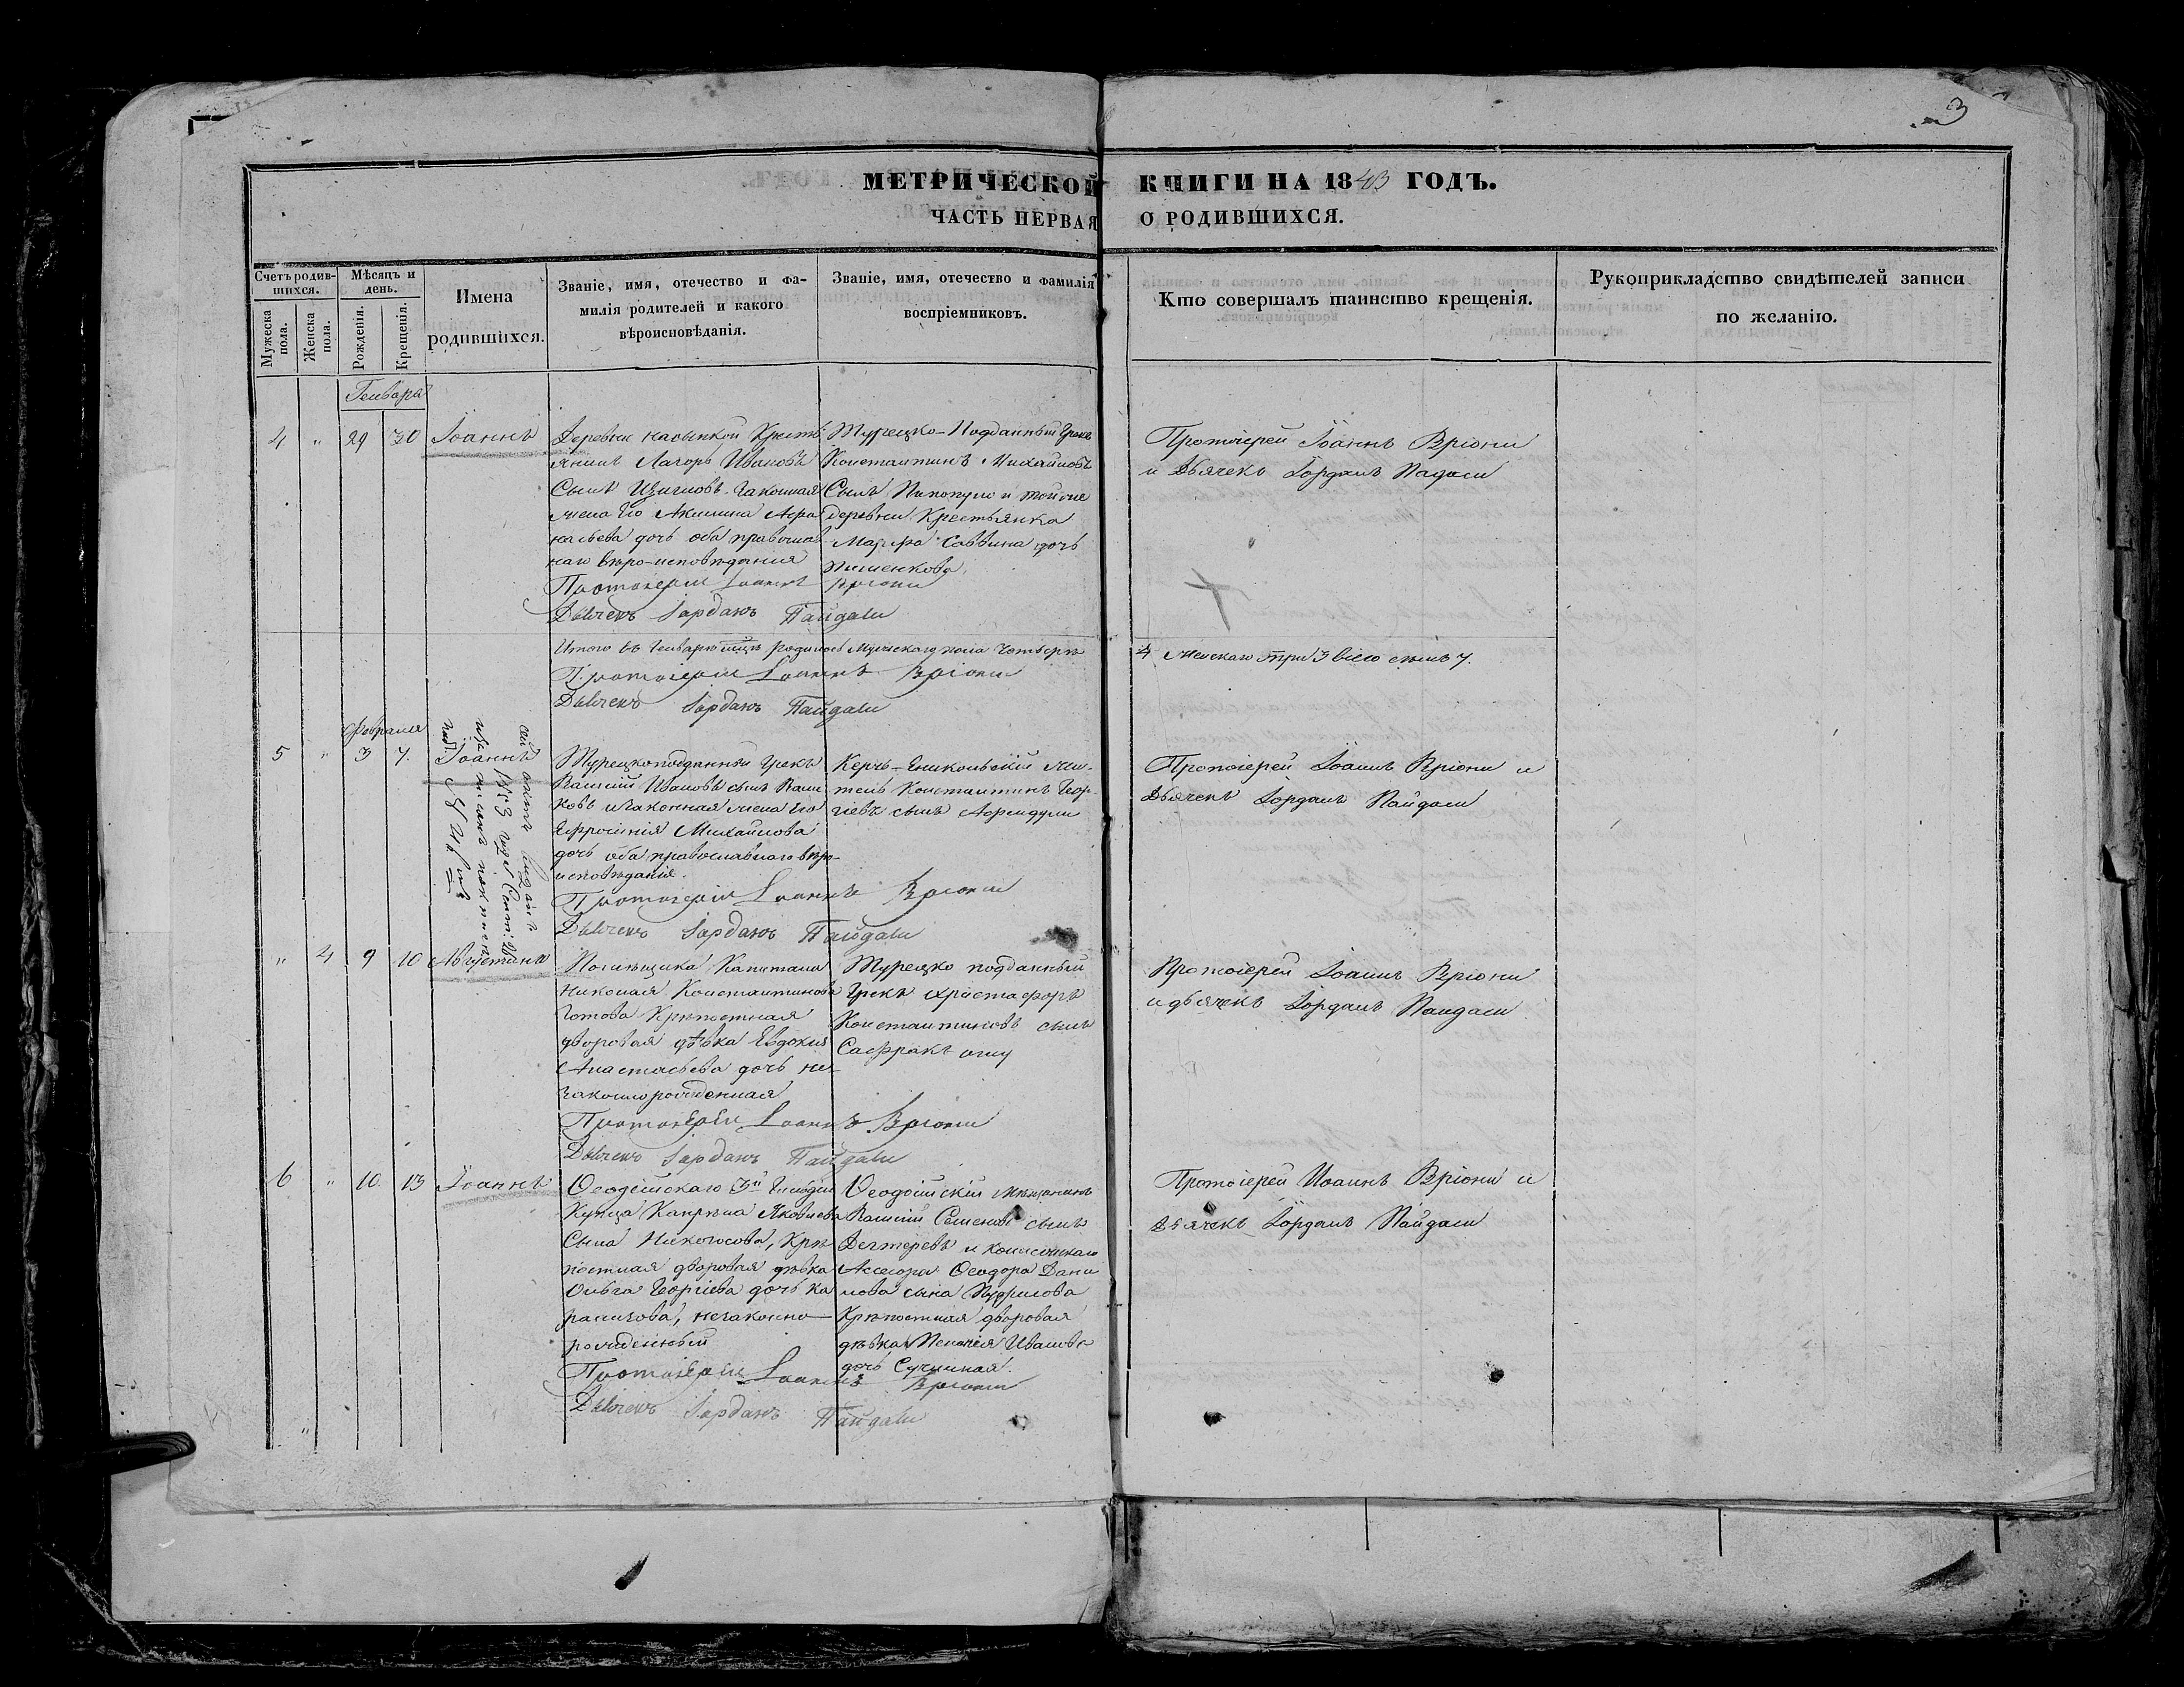 3
МЕТРИЧЕСКОЙ КНИГИ НА 1843 ГОДЪ.
ЧАСТЬ ПЕРВАЯ О РОДИВШИХСЯ.
Счетъ родив-
шихся.
Мужеска пола.
Женска пола.
Мѣсяцъ и
день.
Рожденія.
Крещенія.
Имена
родившихся.
Званіе, имя, отечество и фа-
милія родителей и какого
вѣроисповѣданія.
Званіе, имя, отечество и фамилія
воспріемниковъ.
Кто совершалъ таинство крещенія.
Рукоприкладство свидѣтелей записи
по желанію.
Генваря
4 " 29 30 Іоаннъ
Деревни Крестья
янинъ Ивановъ
Сынъ законная
жена его Акилина Афа
насьева дочь оба православ
наго вѣро-исповѣданія
Протоіерей Іоаннъ Вріони
Дьячекъ Іорданъ Пайдаси
Турецко-Подданный Грекъ
Константинъ Михайловъ
Сынъ и той же
деревни Крестьянка
Марфа Саввина дочь
Протоіерей Іоаннъ Вріони
и Дьячекъ Іорданъ Падаси
Итого въ Генварѣ мцѣ родилось Мужескаго пола Четыре
4 Женскаго три 3 всего семь 7.
Протоіерей Іоаннъ Вріони
Дьячекъ Іорданъ Пайдаси
Февраля
5 " 3 7. Іоаннъ
Турецкоподданный Грекъ
Василій Ивановъ сынъ
и законная жена его
Ефросинія Михайлова
дочь оба православнаго вѣро-
исповѣданія.
Протоіерей Іоаннъ Вріони
Дьячекъ Іорданъ Пайдаси
Керчь-Еникольскій жи-
тель Константинъ Геор-
гіевъ сынъ
Протоіерей Іоаннъ Вріони и
Дьячекъ Іорданъ Пайдаси
" 4 9 10 Августина
Помѣщика Капитана
Николая Константинова
Крѣпостная
дворовая дѣвка Евдокия
Анастасьева дочь не-
законорожденная
Протоіерей Іоаннъ Вріони
Дьячекъ Іорданъ Пайдаси
Турецко подданный
Грекъ Христофоръ
Константиновъ сынъ
Протоіерей Іоаннъ Вріони
и дьячекъ Іорданъ Паидаси
6 " 10 13 Іоаннъ
Ѳеодосійскаго 3й Гильдіи
Купца Яковлева
Сына Крѣ
постная дворовая дѣвка
Ольга Георгіева дочь
незаконно
рожденный
Протоіерей Іоаннъ Вріони
Дьячекъ Іорданъ Пайдаси
Ѳеодосійскій мѣщанинъ
Василій Семеновъ сынъ
Дегтеревъ и колежскаго
Ассесора Ѳеодора Дани
лова сына
Крѣпостная дворовая
дѣвка Пелагія Иванова
дочь
Протоіерей Иоаннъ Вріони и
Дьячекъ Іорданъ Пайдаси